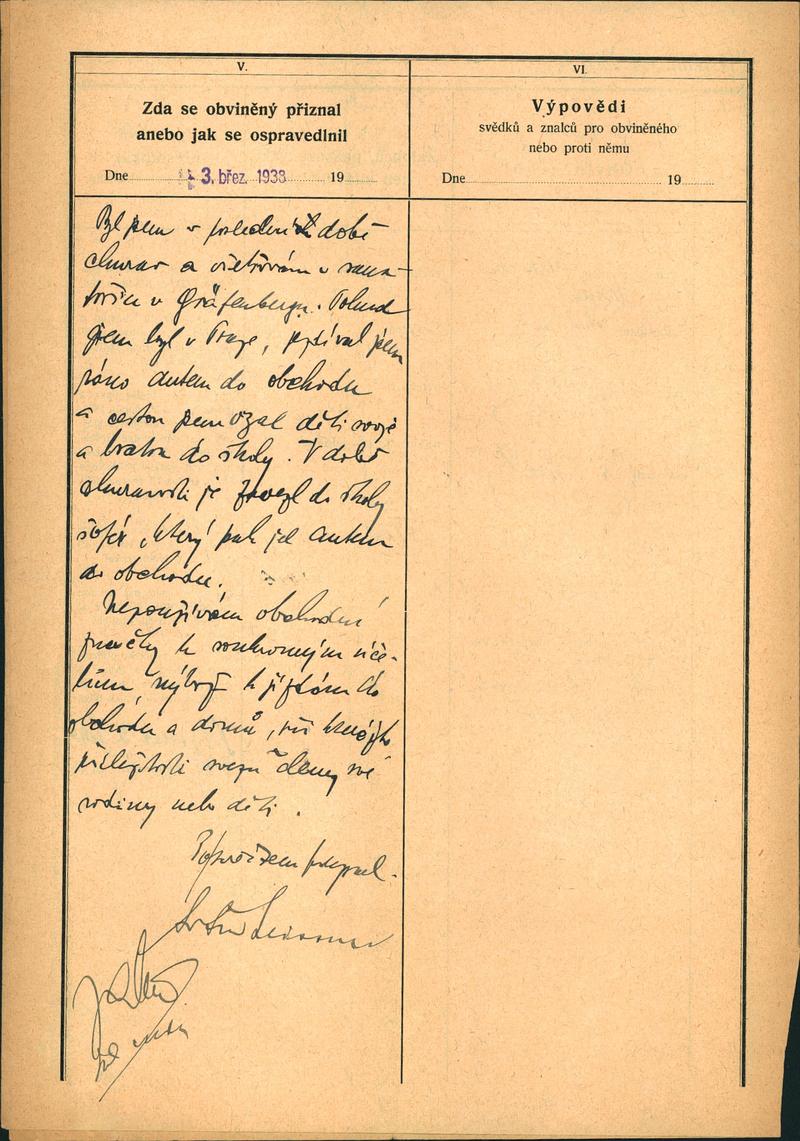 V.
Zda se obviněný přiznal
anebo jak se ospravedlnil
Dne 3. břez. 1938 19
Byl jsem v poslední době
churav a ošetřován v sana-
toriu v Gräfenbergu. Pokud
jsem byl v Praze, jezdíval jsem
ráno autem do obchodu
a cestou jsem vzal děti svoje
a bratra do školy. V době
churavosti je zavezl do školy
šofér, který pak jel autem
do obchodu.
Nepoužívám obchodní
značky k soukromým úče-
lům, nýbrž k jízdám do
obchodu a domů, při
příležitosti svezu členy své
rodiny nebo děti.
VI.
Výpovědi
svědků a znalců pro obviněného
nebo proti němu
Dne 19